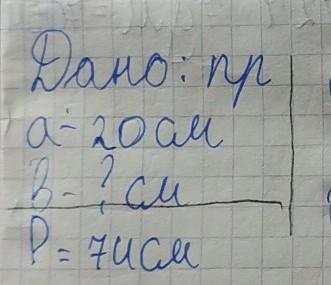 Дано: пр
a - 20 см
B - ? см
P = 74 см